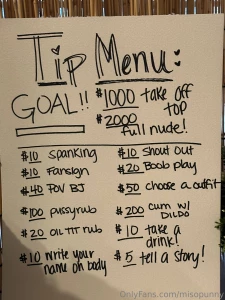 Tip Menu:
GOAL!! $1000 take off
top
$2000
full nude!
$10 spanking
$10 Fansign
$40 POV BJ
$100 pussyrub
$20 OIL TIT rub
$10 write your
name on body
$10 shout out
$20 Boob play
$50 choose a outfit
$200 cum w/
DILDO
$10 take a
drink!
$5 tell a story!
OnlyFans.com/misopunny